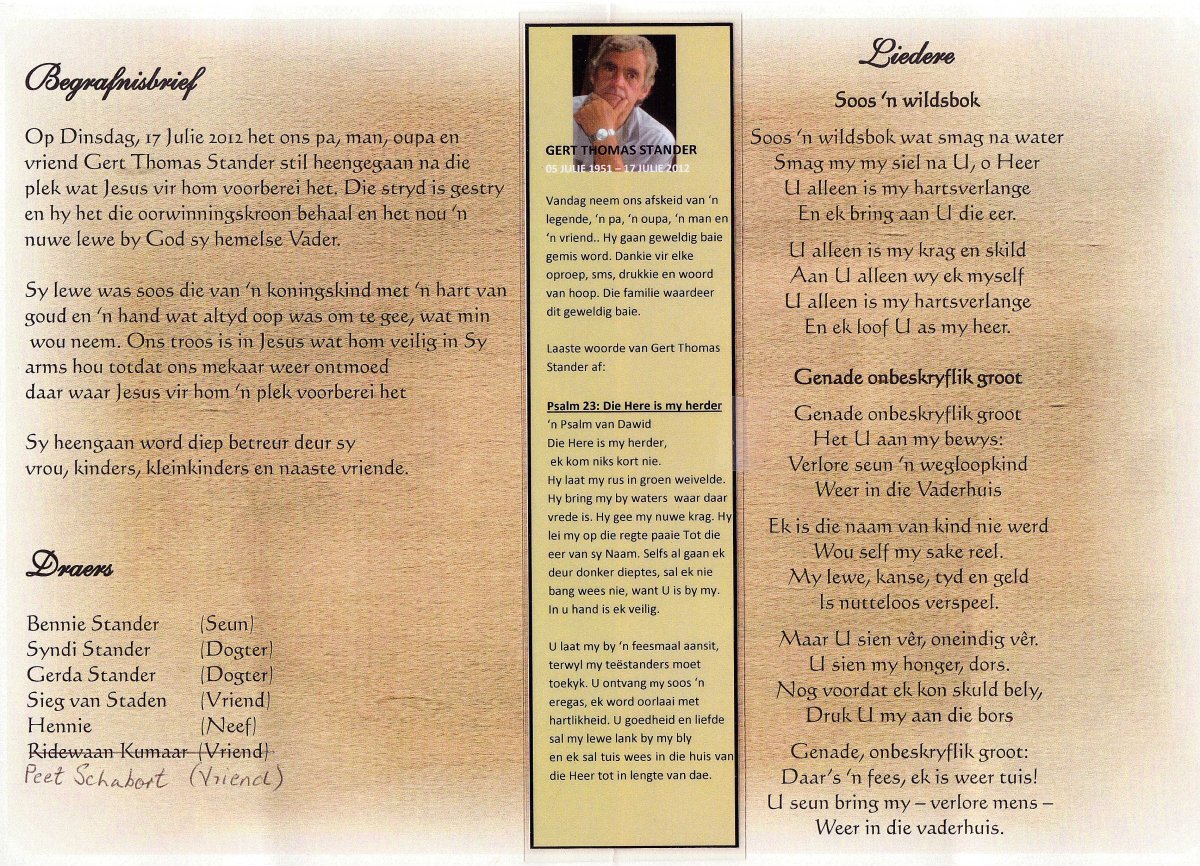 Begrafnisbrief
Op Dinsdag, 17 Julie 2012 het ons pa, man, oupa en
vriend Gert Thomas Stander stil heengegaan na die
plek wat Jesus vir hom voorberei het. Die stryd is gestry
en hy het die oorwinningskroon behaal en het nou 'n
nuwe lewe by God sy hemelse Vader.
Sy lewe was soos die van 'n koningskind met 'n hart van
goud en 'n hand wat altyd oop was om te gee, wat min
wou neem. Ons troos is in Jesus wat hom veilig in Sy
arms hou totdat ons mekaar weer ontmoed
daar waar Jesus vir hom 'n plek voorberei het
Sy heengaan word diep betreur deur sy
vrou, kinders, kleinkinders en naaste vriende.
Draers
Bennie Stander (Seun)
Syndi Stander (Dogter)
Gerda Stander (Dogter)
Sieg van Staden (Vriend)
Hennie (Neef)
Ridewaan Kumaar (Vriend)
Peet Schabort (Vriend)
GERT THOMAS STANDER
05 JULIE 1951 – 17 JULIE 2012
Vandag neem ons afskeid van 'n
legende, 'n pa, 'n oupa, 'n man en
'n vriend.. Hy gaan geweldig baie
gemis word. Dankie vir elke
oproep, sms, drukkie en woord
van hoop. Die familie waardeer
dit geweldig baie.
Laaste woorde van Gert Thomas
Stander af:
Psalm 23: Die Here is my herder
'n Psalm van Dawid
Die Here is my herder,
ek kom niks kort nie.
Hy laat my rus in groen weivelde.
Hy bring my by waters waar daar
vrede is. Hy gee my nuwe krag. Hy
lei my op die regte paaie Tot die
eer van sy Naam. Selfs al gaan ek
deur donker dieptes, sal ek nie
bang wees nie, want U is by my.
In u hand is ek veilig.
U laat my by 'n feesmaal aansit,
terwyl my teëstanders moet
toekyk. U ontvang my soos 'n
eregas, ek word oorlaai met
hartlikheid. U goedheid en liefde
sal my lewe lank by my bly
en ek sal tuis wees in die huis van
die Heer tot in lengte van dae.
Liedere
Soos 'n wildsbok
Soos 'n wildsbok wat smag na water
Smag my my siel na U, o Heer
U alleen is my hartsverlange
En ek bring aan U die eer.
U alleen is my krag en skild
Aan U alleen wy ek myself
U alleen is my hartsverlange
En ek loof U as my heer.
Genade onbeskryflik groot
Genade onbeskryflik groot
Het U aan my bewys:
Verlore seun 'n wegloopkind
Weer in die Vaderhuis
Ek is die naam van kind nie werd
Wou self my sake reel.
My lewe, kanse, tyd en geld
Is nutteloos verspeel.
Maar U sien vêr, oneindig vêr.
U sien my honger, dors.
Nog voordat ek kon skuld bely,
Druk U my aan die bors
Genade, onbeskryflik groot:
Daar's 'n fees, ek is weer tuis!
U seun bring my – verlore mens –
Weer in die vaderhuis.